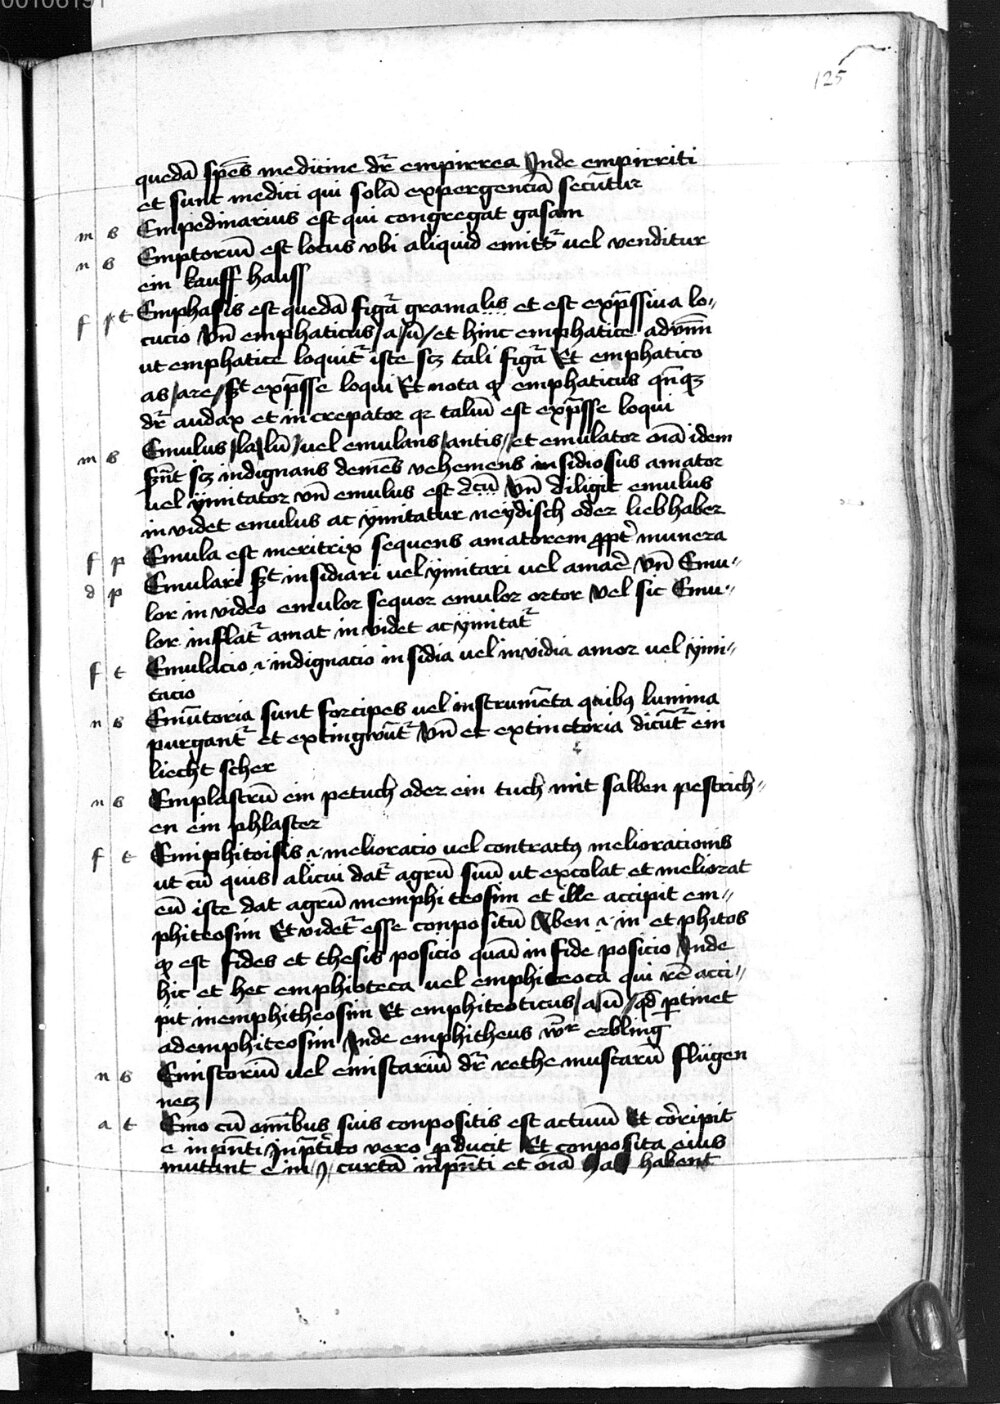 00106191
125
quedā spēs medicine dr̄ empirrea Inde empirriti
et sunt medici qui solā expergenciā secūtur
m s Empedinarius est qui congregat gasam
n s Emptoriū est locus vbi aliquid emitt᷑ uel venditur
ein kauff hauss
f p t Emphasis est quedā figᷓa gramalis et est exp̄ssiua lo-
cucio vn̄ emphaticus / a / ū / et hinc emphatice aduerbiū
ut emphatice loquit᷑ iste scꝫ tali figᷓa Et emphatico
as / are / exp̄sse loqui Et nota ꝙ emphaticus qn̄qꝫ
dr̄ audax et increpator qr taliū est exp̄sse loqui
m s Emulus / la / lū / uel emulans / antis / et emulator oīa idem
sūt scꝫ indignans demēs vehemens insidiosus amator
uel ymitator vn̄ emulus est dc̄ū vn̄ diligit emulus
in videt emulus ac ymitatur neydisch oder liebhaber
f p Emula est meritrix sequens amatorem ꝓpt̄ munera
d p Emulari insidiari uel ymitari uel amar̄e vn̄ Emu-
lor in video emulor sequor emulor ortor vel sic Emu-
lor inflat᷑ amat in videt ac ymitat᷑
f t Emulacio .i. indignacio insidia uel invidia amor uel ymi-
tacio
n s Emūtoria sunt forcipes uel instrumēta quibꝰ lumina
purgant᷑ et extingwūt᷑ vn̄ et extinctoria dicūt᷑ ein
liecht scher
n s Emplastrū ein petuch oder ein tuch mit salben pestrich-
en ein phlaster
f t Emiphitoisis .i. melioracio uel contractꝰ melioracionis
ut cū quis alicui dat᷑ agrū suū ut excolat et meliorat
eū iste dat agrū inemphiteosim et ille accipit em-
phiteosim Et videt᷑ esse conpositū .i. in et phitos
ꝙ est fides et thesis posicio quāi in fide posicio Inde
hic et hec emphioteca uel emphiteoca qui rē acci-
pit inemphitheosim Et emphiteoticus / a / ū / qd̄ ꝑtinet
ademphiteosim Inde emphitheus erbling
n s Emistoriū uel emistariū dr̄ rethe muscarū flügen
necz
a t Emo cū omībus suis conpositis est actiuū Et cōripit
e in pn̄ti In p̄terito vero ꝓducit Et conposita eius
mutant e in / i / curtā in pn̄ti et oīa habent